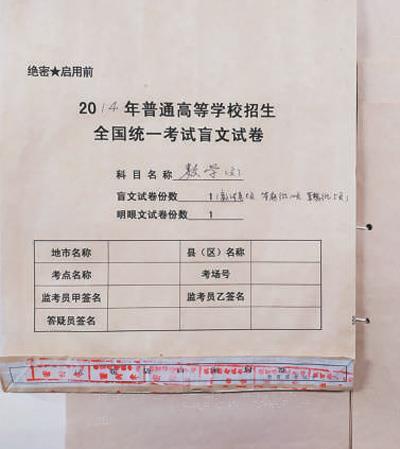 绝密★启用前
2014年普通高等学校招生
全国统一考试盲文试卷
科目名称 数学(文)
盲文试卷份数 1
明眼文试卷份数 1
地市名称 县(区)名称
考点名称 考场号
监考员甲签名 监考员乙签名
答疑员签名